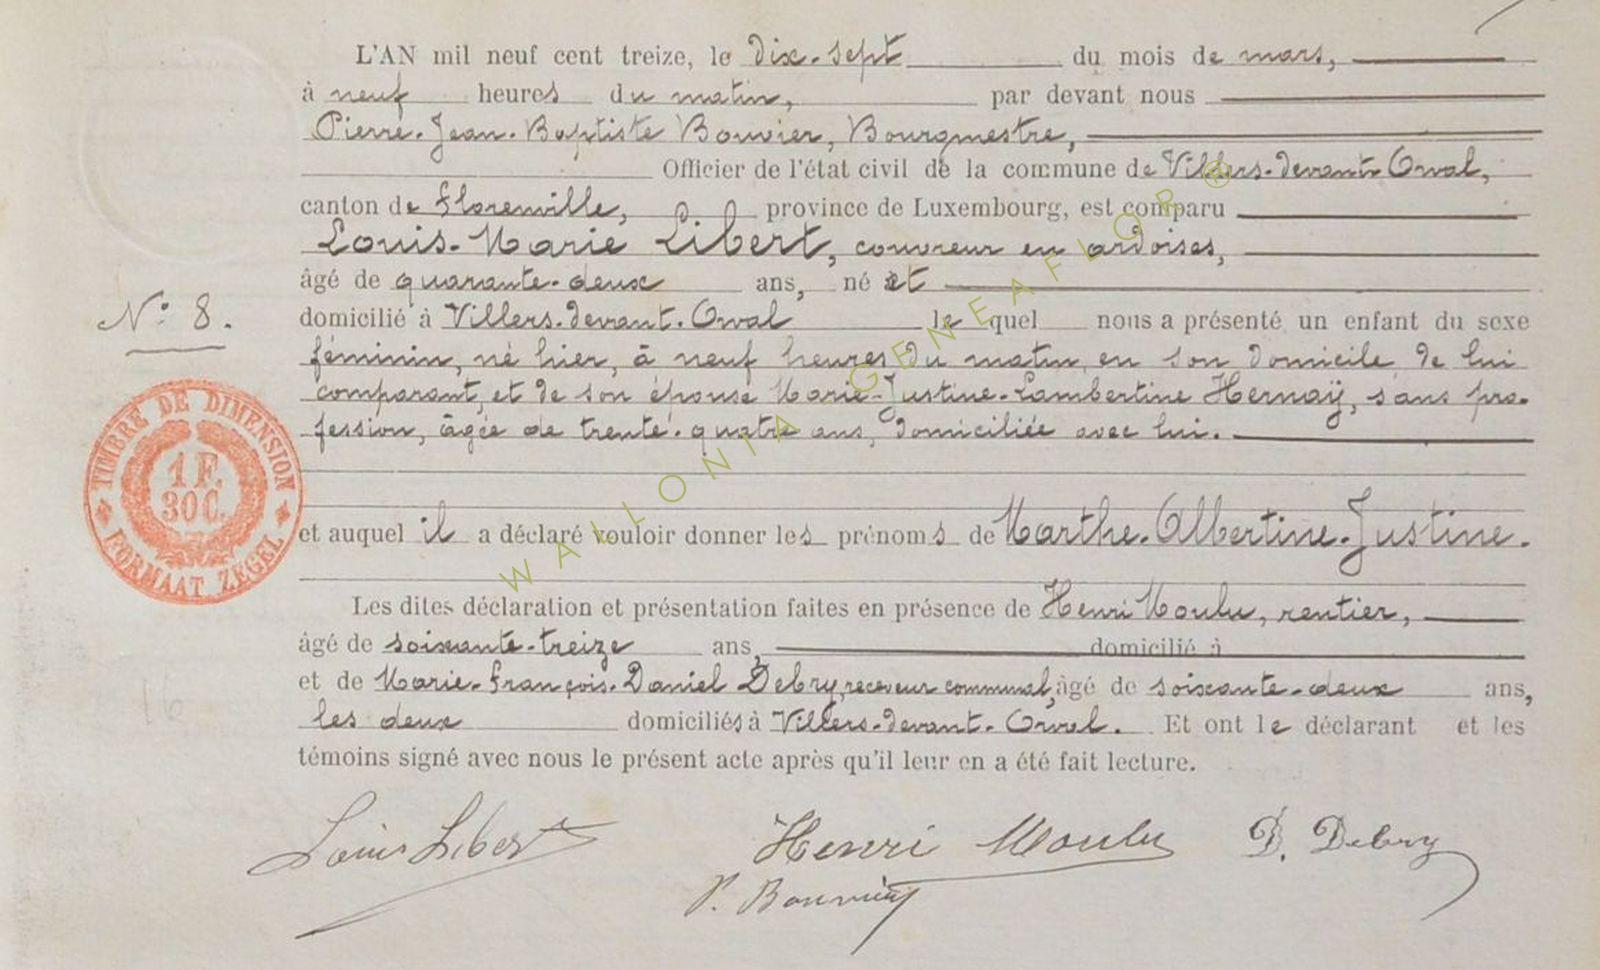 L'AN mil neuf cent treize, le dix-sept du mois de mars,
à neuf heures du matin, par devant nous
Pierre-Jean-Baptiste Bouvier, Bourgmestre,
Officier de l'état civil de la commune de Villers-devant-Orval,
canton de Florenville, province de Luxembourg, est comparu
Louis-Marie Libert, couvreur en ardoises,
âgé de quarante-deux ans, né et
domicilié à Villers-devant-Orval lequel nous a présenté un enfant du sexe
N° 8.
féminin, né hier, à neuf heures du matin, en son domicile de lui
comparant, et de son épouse Marie-Justine-Lambertine Hernaÿ, sans pro-
fession, âgée de trente-quatre ans, domiciliée avec lui.
TIMBRE DE DIMENSION
1 F.
30 C.
FORMAAT ZEGEL
et auquel il a déclaré vouloir donner les prénoms de Marthe-Albertine-Justine.
Les dites déclaration et présentation faites en présence de Henri Moulu, rentier,
âgé de soixante-treize ans, domicilié à
et de Marie-François-Daniel Debry, receveur communal, âgé de soixante-deux ans,
les deux domiciliés à Villers-devant-Orval. Et ont le déclarant et les
témoins signé avec nous le présent acte après qu'il leur en a été fait lecture.
Louis Libert Henri Moulu D. Debry
P. Bouvier
16
WALLONIA GENEAFLOR ®